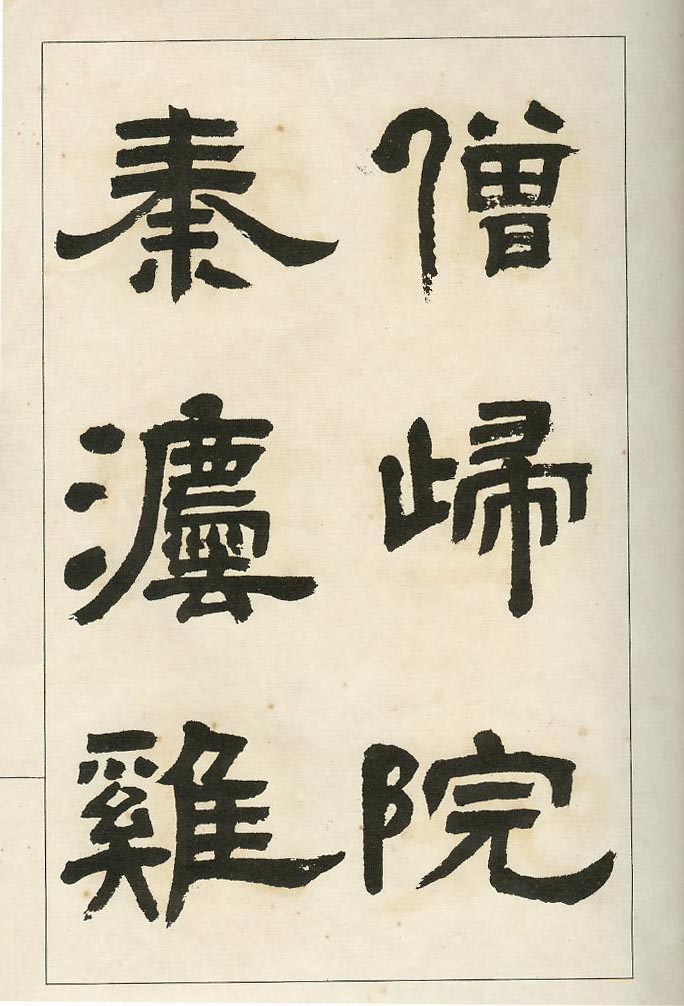 僧㱕院
秦瀍雞